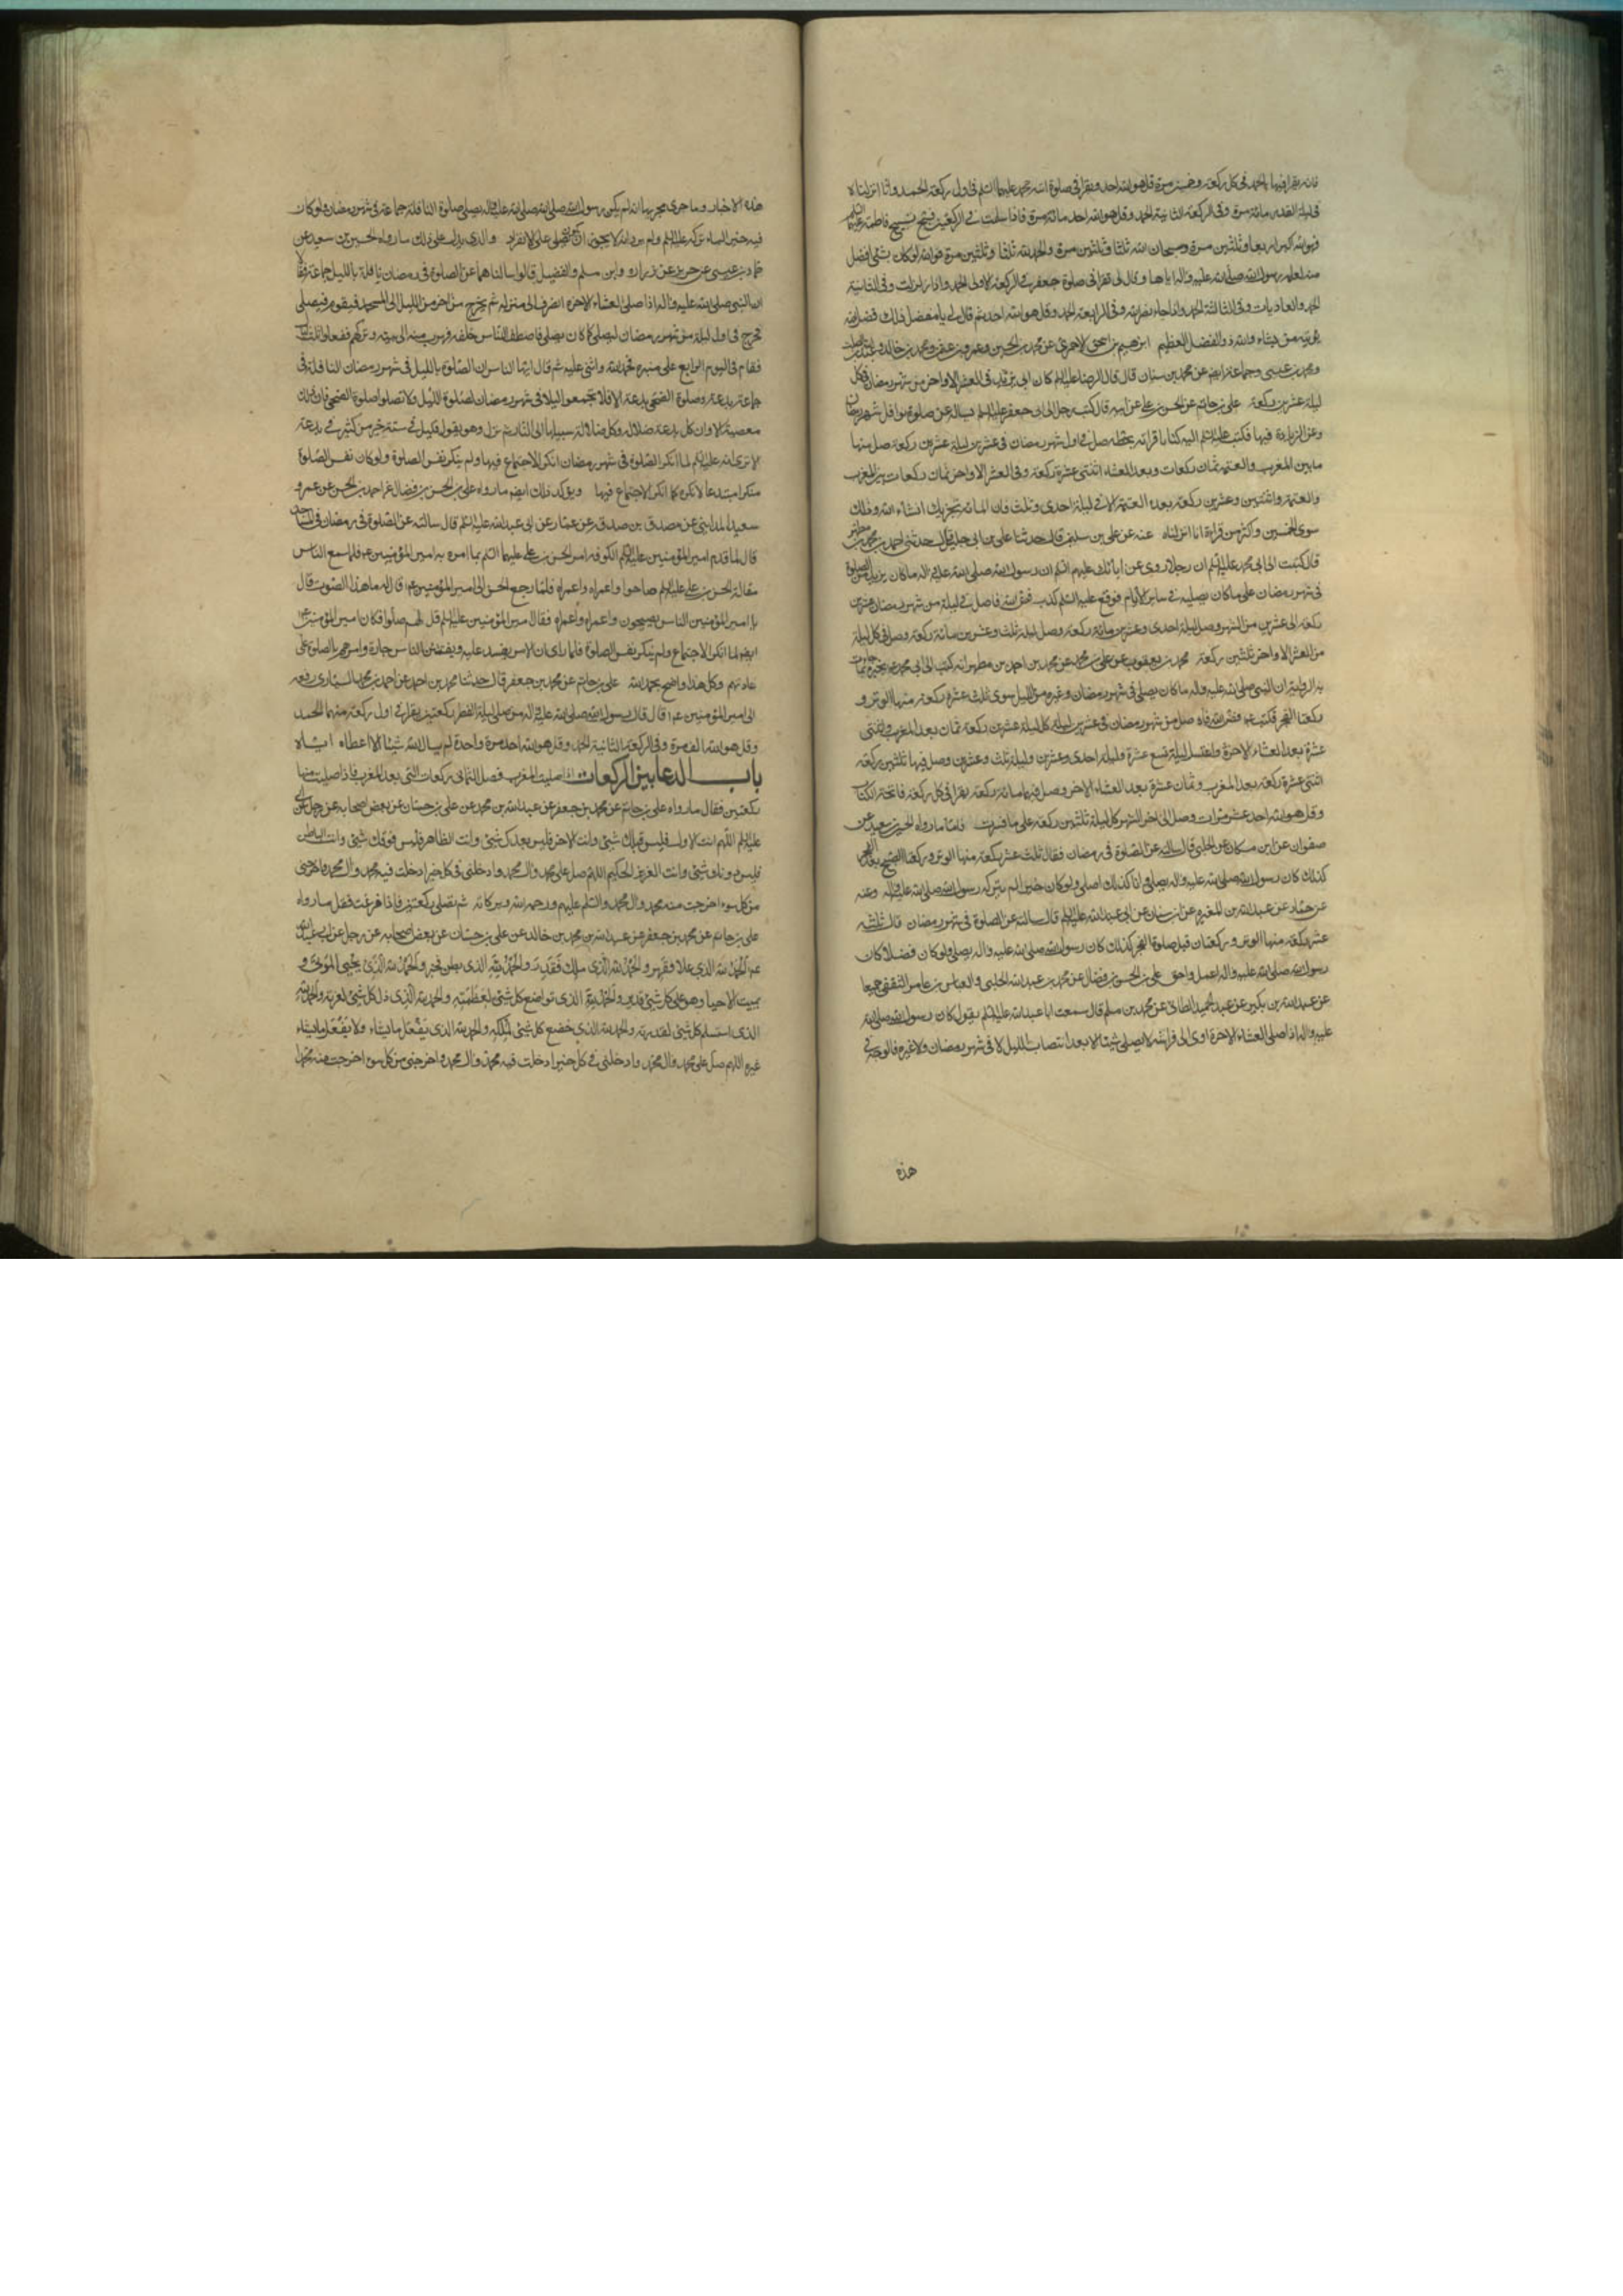 فانه يقرا فيها بالحمد في كل ركعة وخمسين مرة قل هو الله احد ويقرا في صلوة ابنة محمد عليهما السلم في اول ركعة الحمد وانا انزلناه
في ليلة القدر مائة مرة وفي الركعة الثانية الحمد وقل هو الله احد مائة مرة فاذا سلمت في الركعتين فسبح تسبيح فاطمة عليها السلم
وهو الله اكبر اربعا وثلثين مرة وسبحان الله ثلثا وثلثين مرة والحمد لله ثلثا وثلثين مرة فوالله لو كان شئ افضل
منه لعلمه رسول الله صلى الله عليه واله اياها وقال لي تقرا في صلوة جعفر في الركعة الاولى الحمد واذا زلزلت وفي الثانية
الحمد والعاديات وفي الثالثة الحمد واذا جاء نصر الله وفي الرابعة الحمد وقل هو الله احد ثم قال لي يا مفضل ذلك فضل الله
يؤتيه من يشاء والله ذو الفضل العظيم ابرهيم بن اسحق الاحمري عن محمد بن الحسين وعمرو بن عثمن ومحمد بن خالد وعبد الله بن الصلت
ومحمد بن عيسى وجماعة ايضا عن محمد بن سنان قال قال الرضا عليه السلم كان ابي يزيد في العشر الاواخر من شهر رمضان في كل
ليلة عشرين ركعة علي بن حاتم عن الحسن بن علي عن ابيه قال كتب رجل الى ابي جعفر عليه السلم يساله عن صلوة نوافل شهر رمضان
وعن الزيادة فيها فكتب عليه السلم اليه كتابا قراته بخطه صل في اول شهر رمضان في عشرين ليلة عشرين ركعة صل منها
ما بين المغرب والعتمة ثمان ركعات وبعد العشاء اثنتي عشرة ركعة وفي العشر الاواخر ثمان ركعات بين المغرب
والعتمة واثنتين وعشرين ركعة بعد العتمة الا في ليلة احدى وثلث فان المائة تجزيك انشاء الله وذلك
سوى الخمسين واكثر من قراءة انا انزلناه عنه عن علي بن سليمن قال حدثنا علي بن ابي خليس قال حدثني احمد بن محمد بن مطهر
قال كتبت الى ابي محمد عليه السلم ان رجلا روى عن ابائك عليهم السلم ان رسول الله صلى الله عليه واله ما كان يزيد من الصلوة
في شهر رمضان على ما كان يصليه في ساير الايام فوقع عليه السلم كذب فض الله فاه صل في كل ليلة من شهر رمضان عشرين
ركعة الى عشرين من الشهر وصل ليلة احدى وعشرين مائة ركعة وصل ليلة ثلث وعشرين مائة ركعة وصل في كل ليلة
من العشر الاواخر ثلثين ركعة محمد بن يعقوب عن علي بن محمد عن محمد بن احمد بن مطهر انه كتب الى ابي محمد ع يخبره بما جاءت
به الرواية ان النبي صلى الله عليه واله ما كان يصلي في شهر رمضان وغيره من الليل سوى ثلث عشرة ركعة منها الوتر و
ركعتا الفجر فكتب ع فض الله فاه صل من شهر رمضان في عشرين ليلة كل ليلة عشرين ركعة ثمان بعد المغرب واثنتي
عشرة بعد العشاء الاخرة واغتسل ليلة تسع عشرة وليلة احدى وعشرين وليلة ثلث وعشرين وصل فيها ثلثين ركعة
اثنتي عشرة ركعة بعد المغرب وثمان عشرة بعد العشاء الاخر وصل فيهما مائة ركعة يقرا في كل ركعة فاتحة الكتاب
وقل هو الله احد عشر مرات وصل الى اخر الشهر كل ليلة ثلثين ركعة على ما فسرت فاما ما رواه الحسين بن سعيد عن
صفوان عن ابن مسكان عن الحلبي قال سالته عن الصلوة في رمضان فقال ثلث عشرة ركعة منها الوتر وركعتا الصبح بعد الفجر
كذلك كان رسول الله صلى الله عليه واله يصلي وانا كذلك اصلي ولو كان خيرا لم يتركه رسول الله صلى الله عليه واله وعنه
عن حماد عن عبد الله بن المغيرة عن ابن سنان عن ابي عبد الله عليه السلم قال سالته عن الصلوة في شهر رمضان قال ثلثة
عشر ركعة منها الوتر وركعتان قبل صلوة الفجر كذلك كان رسول الله صلى الله عليه واله يصلي ولو كان فضلا كان
رسول الله صلى الله عليه واله اعمل واحق علي بن الحسن بن فضال عن محمد بن عبيد الله الحلبي والعباس بن عامر الثقفي جميعا
عن عبد الله بن بكير عن عبد الحميد الطائي عن محمد بن مسلم قال سمعت ابا عبد الله عليه السلم يقول كان رسول الله صلى الله
عليه واله اذا صلى العشاء الاخرة اوى الى فراشه لا يصلي شيئا الا بعد انتصاف الليل لا في شهر رمضان ولا غيره فالوجه في
هذه
هذه الاخبار وما جرى مجراها انه لم يكن رسول الله صلى الله عليه واله يصلي صلوة النافلة جماعة في شهر رمضان ولو كان
فيه خير لما تركه عليه السلم ولم يرد انه لا يجوز ان يصلي على الانفراد والذي يدل على ذلك ما رواه الحسين بن سعيد عن
حماد بن عيسى عن حريز عن زرارة وابن مسلم والفضيل قالوا سالناهما عن الصلوة في رمضان نافلة بالليل جماعة فقالا
ان النبي صلى الله عليه واله اذا صلى العشاء الاخرة انصرف الى منزله ثم يخرج من اخر من الليل الى المسجد فيقوم فيصلي
فخرج في اول ليلة من شهر رمضان ليصلي كما كان يصلي فاصطف الناس خلفه فهرب منهم الى بيته وتركهم ففعلوا ثلث ليال
فقام في اليوم الرابع على منبره فحمد الله واثنى عليه ثم قال ايها الناس ان الصلوة بالليل في شهر رمضان النافلة في
جماعة بدعة وصلوة الضحى بدعة الا فلا تجمعوا ليلا في شهر رمضان لصلوة الليل ولا تصلوا صلوة الضحى فان ذلك
معصية الا وان كل بدعة ضلالة وكل ضلالة سبيلها الى النار ثم نزل وهو يقول قليل في سنة خير من كثير في بدعة
الا ترى انه عليه السلم لما انكر الصلوة في شهر رمضان انكر الاجتماع فيها ولم ينكر نفس الصلوة ولو كان نفس الصلوة
منكرا مبتدعا لانكره كما انكر الاجتماع فيها ويؤكد ذلك ايضا ما رواه علي بن الحسن بن فضال عن احمد بن الحسن عن عمرو بن
سعيد المدايني عن مصدق بن صدقة عن عمار عن ابي عبد الله عليه السلم قال سالته عن الصلوة في رمضان في المساجد
قال لما قدم امير المؤمنين عليه السلم الكوفة امر الحسن بن علي عليهما السلم بما امره به امير المؤمنين ع فلما سمع الناس
مقالة الحسن بن علي عليه السلم صاحوا واعمراه واعمراه فلما رجع الحسن الى امير المؤمنين ع قال له ما هذا الصوت قال
يا امير المؤمنين الناس يصيحون واعمراه واعمراه فقال امير المؤمنين عليه السلم قل لهم صلوا فكان امير المؤمنين ع
ايضا لما انكر الاجتماع ولم ينكر نفس الصلوة فلما راى ان الامر يفسد عليه ويفتتن الناس اجازه وامرهم بالصلوة على
عادتهم وكل هذا واضح بحمد الله علي بن حاتم عن محمد بن جعفر قال حدثنا محمد بن احمد عن احمد بن محمد السياري رفعه
الى امير المؤمنين ع قال قال رسول الله صلى الله عليه واله من صلى ليلة الفطر ركعتين يقرا في اول ركعة منهما الحمد
وقل هو الله الف مرة وفي الركعة الثانية الحمد وقل هو الله احد مرة واحدة لم يسال الله شيئا الا اعطاه اياه
باب الدعا بين الركعات اذا صليت المغرب فصل الثماني ركعات التي بعد المغرب فاذا صليت منها
ركعتين فقل ما رواه علي بن حاتم عن محمد بن جعفر عن عبد الله بن محمد عن علي بن حسان عن بعض اصحابه عن رجل عن
عليه السلم اللهم انت الاول فليس قبلك شئ وانت الاخر فليس بعدك شئ وانت الظاهر فليس فوقك شئ وانت الباطن
فليس دونك شئ وانت العزيز الحكيم اللهم صل على محمد وال محمد وادخلني في كل خير ادخلت فيه محمد وال محمد واخرجني
من كل سوء اخرجت منه محمد وال محمد والسلم عليهم ورحمة الله وبركاته ثم تصلي ركعتين فاذا فرغت فقل ما رواه
علي بن حاتم عن محمد بن جعفر عن عبد الله بن محمد بن خالد عن علي بن حسان عن بعض اصحابه عن رجل عن ابي عبد الله
ع الحمد لله الذي علا فقهر والحمد لله الذي ملك فقدر والحمد لله الذي بطن فخبر والحمد لله الذي يحيي الموتى و
يميت الاحيا وهو على كل شئ قدير والحمد لله الذي تواضع كل شئ لعظمته والحمد لله الذي ذل كل شئ لعزته والحمد لله
الذي استسلم كل شئ لقدرته والحمد لله الذي خضع كل شئ لملكه والحمد لله الذي يفعل ما يشاء ولا يفعل ما يشاء
غيره اللهم صل على محمد وال محمد وادخلني في كل خير ادخلت فيه محمد وال محمد واخرجني من كل سوء اخرجت منه محمدا